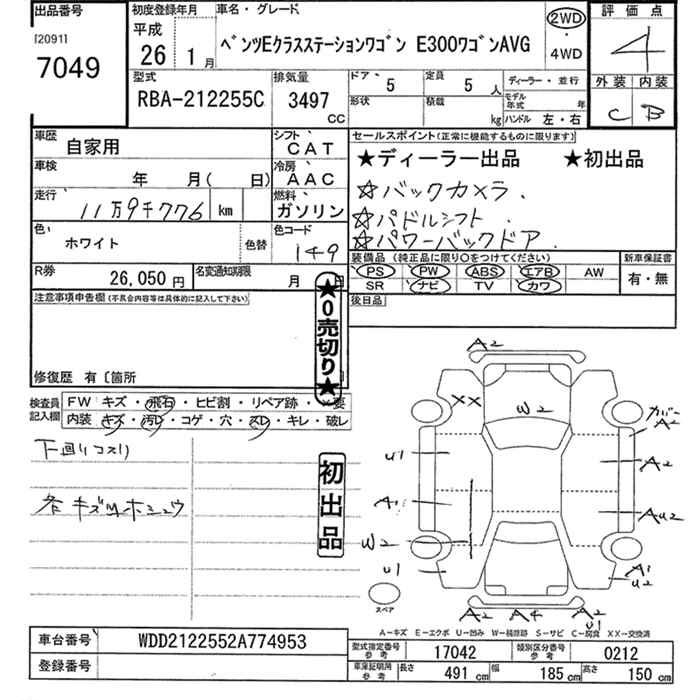 出品番号
[2091]
7049
初度登録年月
平成
26 1月
車名・グレード
ベンツEクラスステーションワゴン E300ワゴンAVG
2WD
・
4WD
評価点
4
外装 内装
C B
型式
RBA-212255C
排気量
3497
CC
ドア 5
定員 5人
形状
積載 kg
ディーラー・並行
モデル年式 年
ハンドル 左・右
車歴
自家用
シフト
CAT
車検
年 月( 日)
冷房
AAC
走行
11万9千776 km
燃料
ガソリン
色
ホワイト
色替
色コード
149
R券
26,050円
名変通知期限
月 日
セールスポイント(正常に機能するものに限ります)
★ディーラー出品 ★初出品
☆バックカメラ.
☆パドルシフト.
☆パワーバックドア.
装備品 (純正品に限り○をつけてください)
PS PW ABS エアB AW
SR ナビ TV カワ
新車保証書
有・無
後日品
注意事項申告欄(不具合内容等は具体的に記入して下さい)
★0売切り★
修復歴 有〔箇所
検査員記入欄
FW キズ・飛石・ヒビ割・リペア跡・×要
内装 キズ・汚レ・コゲ・穴・スレ・キレ・破レ
下回りコスリ
各キズ凹ホシュウ
初出品
A2
XX
W2
カバー
A2
U1
A2
A1
AU2
W2
U1
A1
U2
スペア
A2 A4 A2
U1
A-キズ E-エクボ U-凹み W-補修跡 S-サビ C-腐食 XX-交換済
車台番号
WDD2122552A774953
登録番号
型式指定番号 参考
17042
類別区分番号 参考
0212
車庫証明用 参考
長さ 491cm
幅 185cm
高さ 150cm